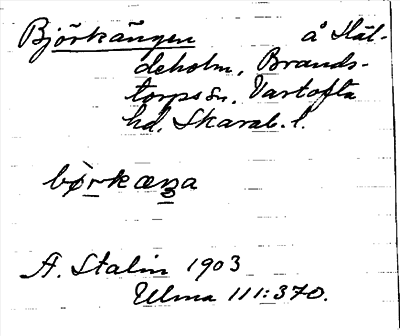 Björkängen å Häl-
deholm, Brands-
torps sn, Vartofta
hd, Skarab. l.
bø̀rkæŋa
A. Stalin 1903
Ulma 111:370.